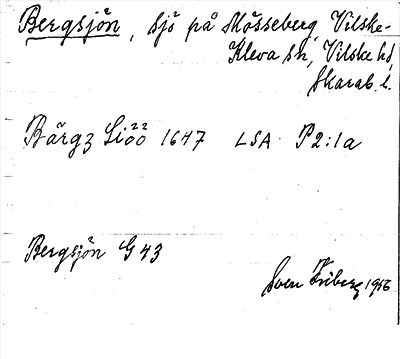 Bergsjön, sjö på Mösseberg, Vilske-
Kleva sn, Vilske hd,
Skarab. l.
Bärgz Siöö 1647 LSA P2:1a
Bergsjön G 43
Sven Friberg 1956